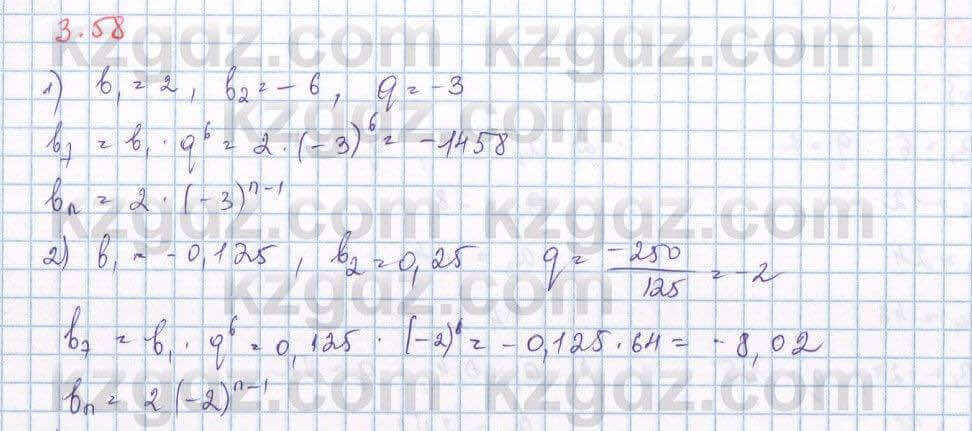 3.58
1) b₁ = 2, b₂ = -6, q = -3
b₇ = b₁ · q⁶ = 2 · (-3)⁶ = -1458
bₙ = 2 · (-3)ⁿ⁻¹
2) b₁ = -0,125, b₂ = 0,25 q = -250/125 = -2
b₇ = b₁ · q⁶ = 0,125 · (-2)⁶ = -0,125 · 64 = -8,02
bₙ = 2 (-2)ⁿ⁻¹
kzgdz.com
kzgdz.com
kzgdz.com
kzgdz.com
kzgdz.com
kzgdz.com
kzgdz.com